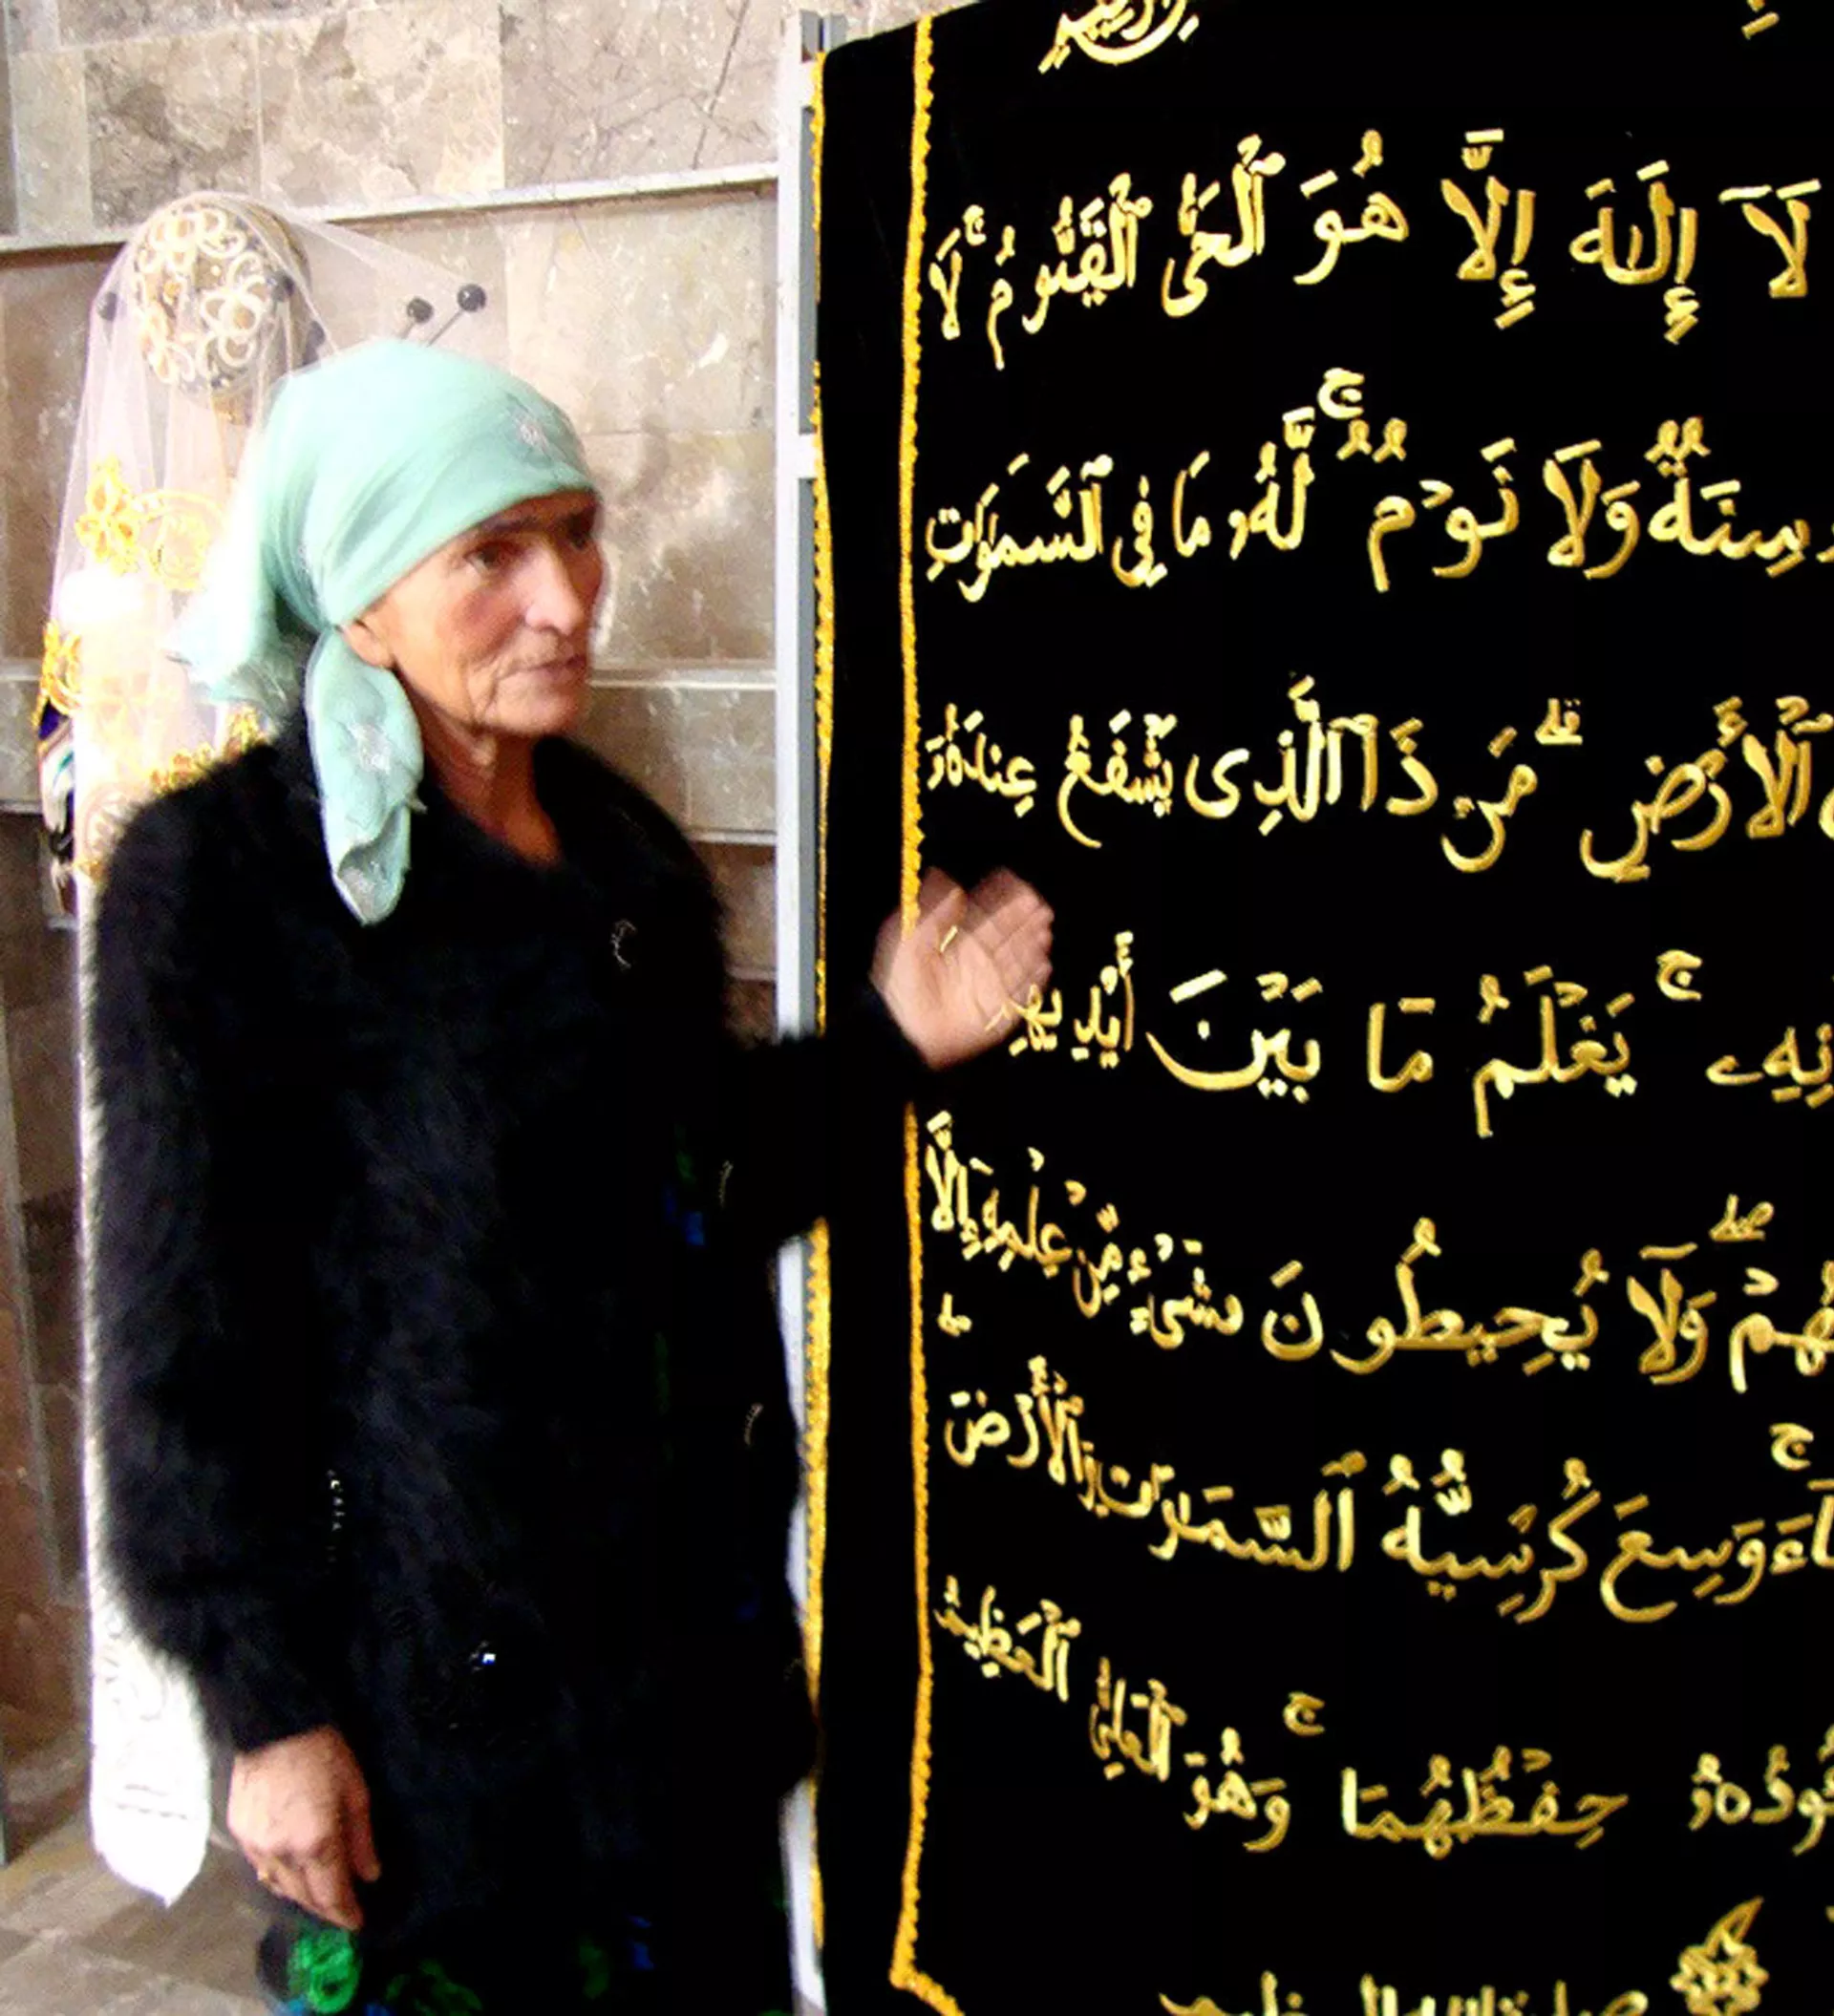 لَآ إِلَٰهَ إِلَّا هُوَ ٱلْحَىُّ ٱلْقَيُّومُ ۚ لَا
سِنَةٌ وَلَا نَوْمٌ ۚ لَّهُۥ مَا فِى ٱلسَّمَٰوَٰتِ
ٱلْأَرْضِ ۗ مَن ذَا ٱلَّذِى يَشْفَعُ عِندَهُۥٓ
نِهِۦ ۚ يَعْلَمُ مَا بَيْنَ أَيْدِيهِمْ
هُمْ ۖ وَلَا يُحِيطُونَ بِشَىْءٍ مِّنْ عِلْمِهِۦٓ إِلَّا
آءَ ۚ وَسِعَ كُرْسِيُّهُ ٱلسَّمَٰوَٰتِ وَٱلْأَرْضَ ۖ
ـُٔودُهُۥ حِفْظُهُمَا ۚ وَهُوَ ٱلْعَلِىُّ ٱلْعَظِيمُ